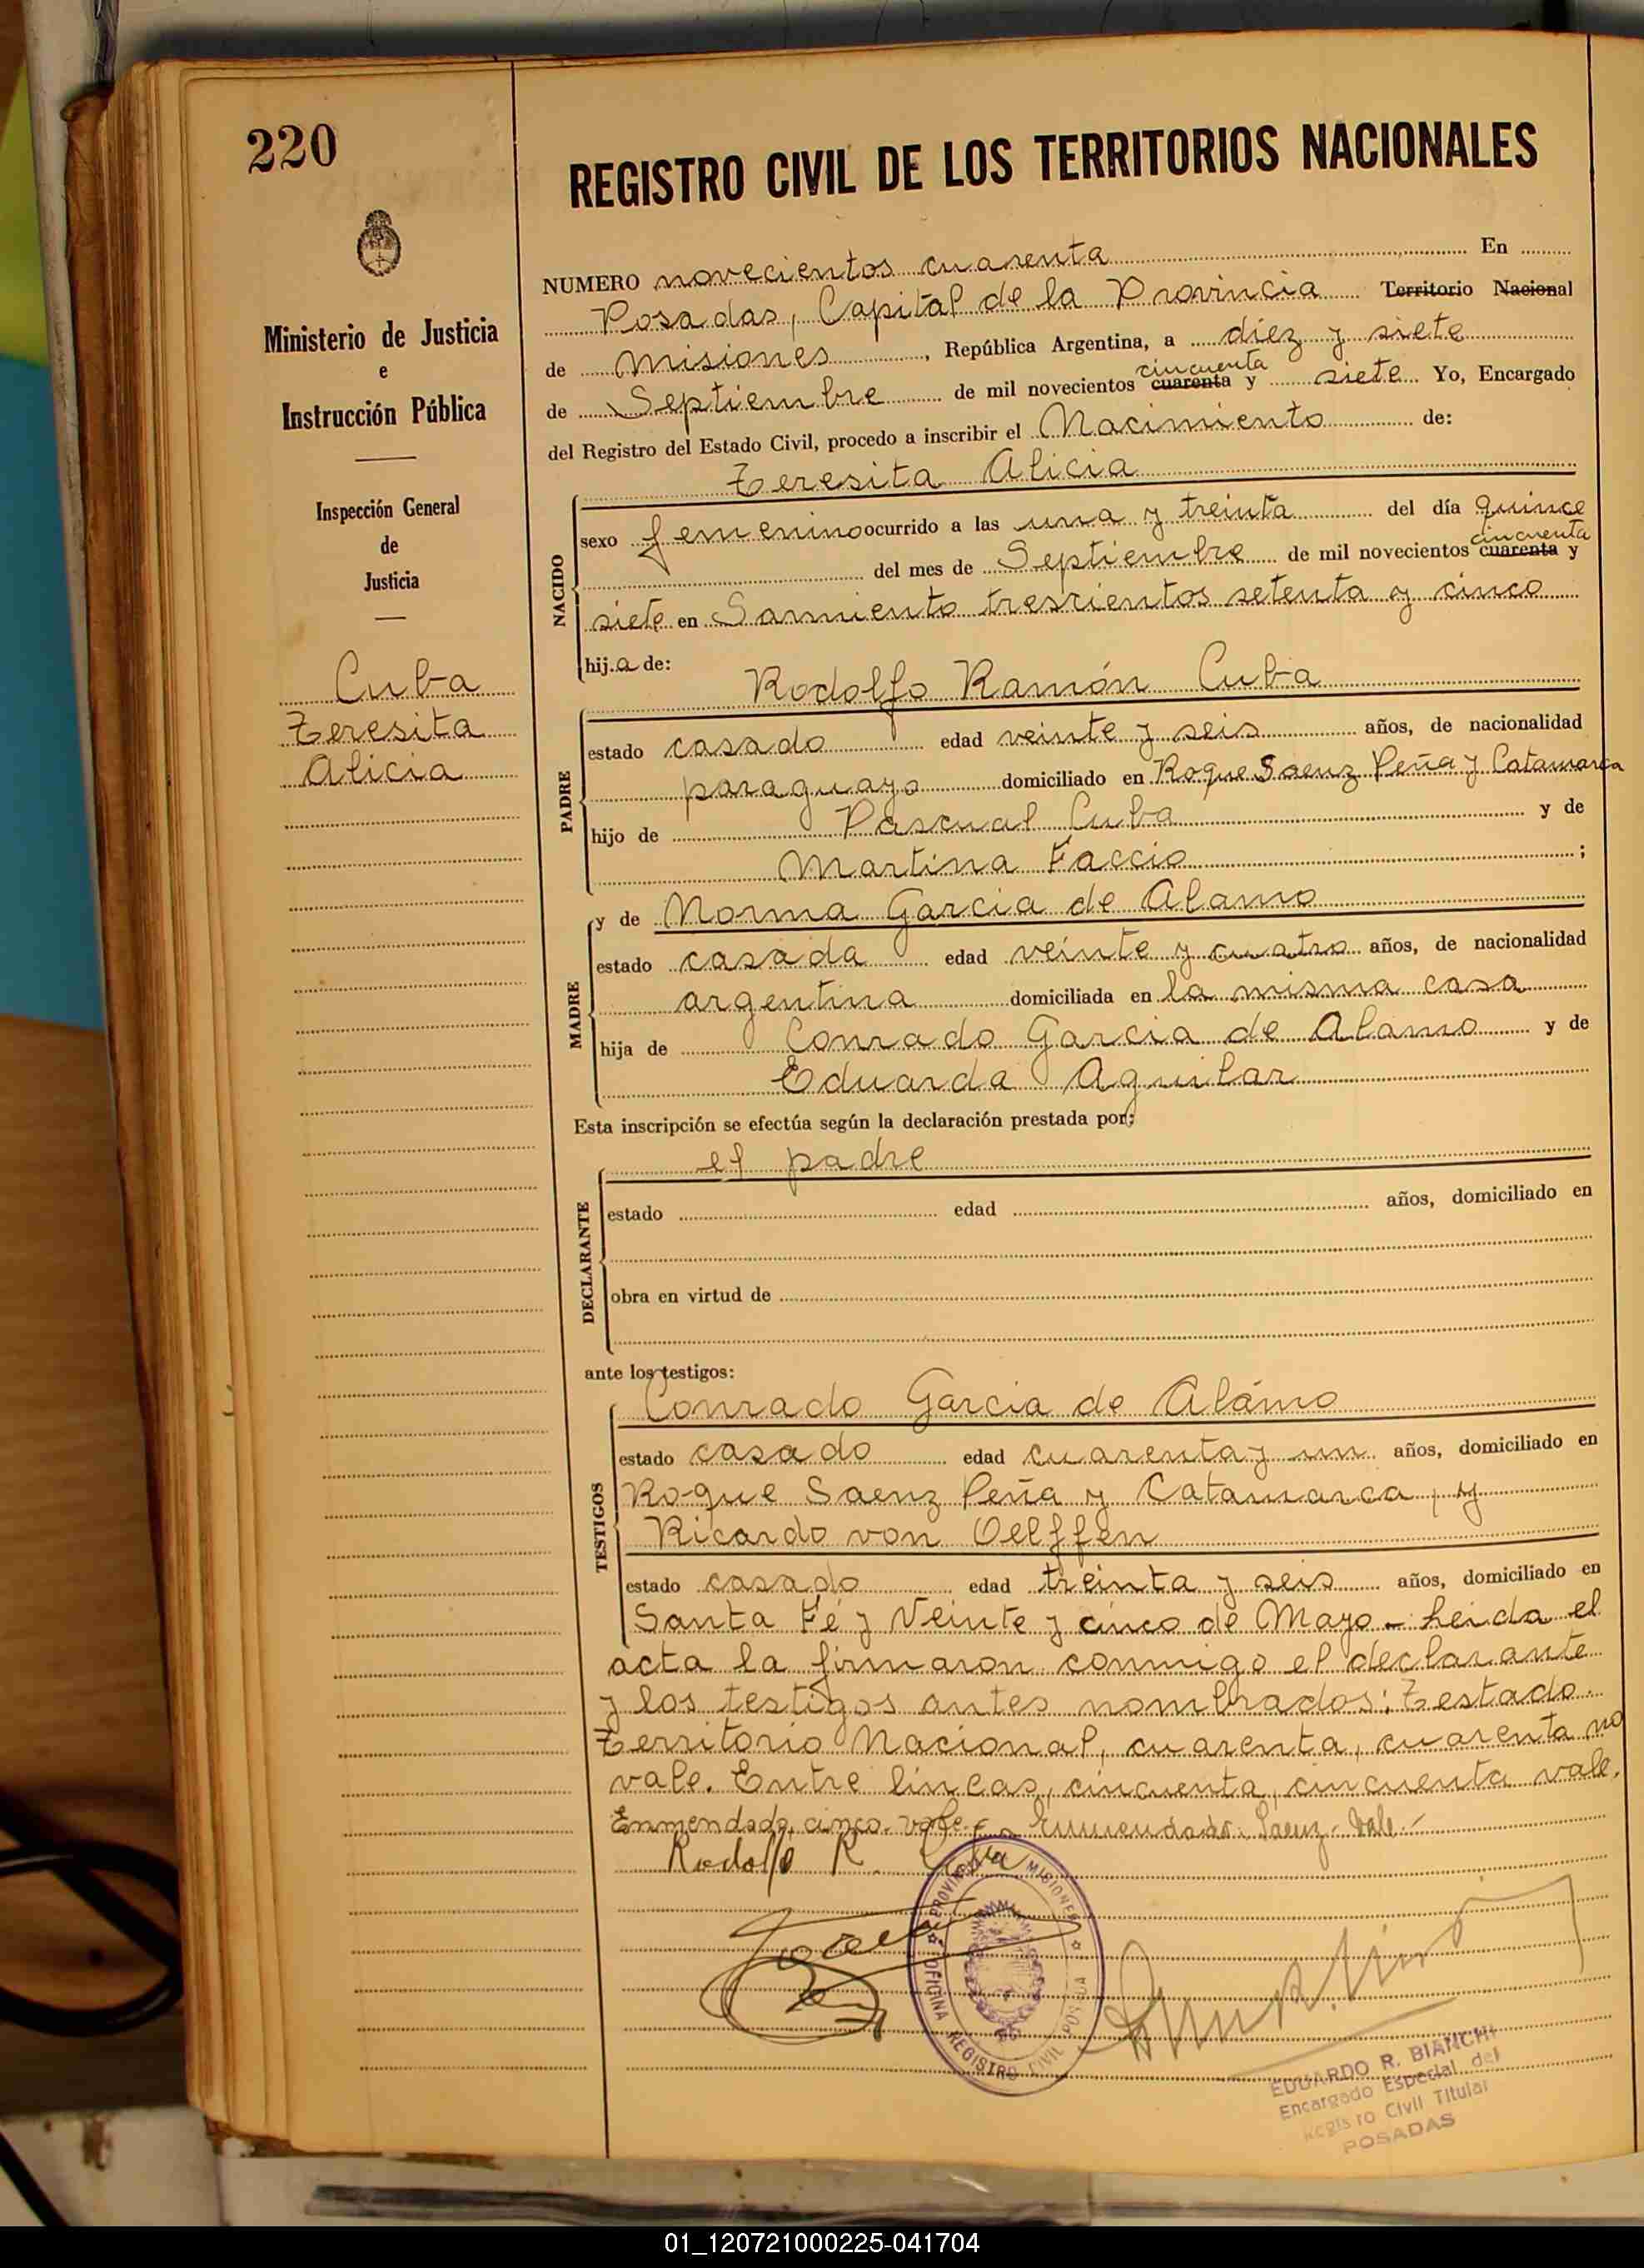 220
REGISTRO CIVIL DE LOS TERRITORIOS NACIONALES
Ministerio de Justicia
e
Instrucción Pública
Inspección General
de
Justicia
Cuba
Teresita
Alicia
NUMERO novecientos cuarenta En
Posadas, Capital de la Provincia Territorio Nacional
de Misiones, República Argentina, a diez y siete
cincuenta
de Septiembre de mil novecientos cuarenta y siete Yo, Encargado
del Registro del Estado Civil, procedo a inscribir el Nacimiento de:
Teresita Alicia
NACIDO
sexo femenino ocurrido a las una y treinta del día quince
cincuenta
del mes de Septiembre de mil novecientos cuarenta y
siete en Sarmiento trescientos setenta y cinco
hija de:
Rodolfo Ramón Cuba
PADRE
estado casado edad veinte y seis años, de nacionalidad
paraguayo domiciliado en Roque Saenz Peña y Catamarca
hijo de Pascual Cuba y de
Martina Faccio ;
MADRE
y de Norma Garcia de Alamo
estado casada edad veinte y cuatro años, de nacionalidad
argentina domiciliada en la misma casa
hija de Conrado Garcia de Alamo y de
Eduarda Aguilar
Esta inscripción se efectúa según la declaración prestada por:
el padre
DECLARANTE
estado edad años, domiciliado en
obra en virtud de
ante los testigos:
Conrado Garcia de Alámo
TESTIGOS
estado casado edad cuarenta y un años, domiciliado en
Roque Saenz Peña y Catamarca, y
Ricardo von Oelffen
estado casado edad treinta y seis años, domiciliado en
Santa Fé y Veinte y cinco de Mayo - Leida el
acta la firmaron conmigo el declarante
y los testigos antes nombrados: Testado.
Territorio Nacional, cuarenta, cuarenta no
vale. Entre líneas, cincuenta, cincuenta vale.
Enmendado, cinco. vale.- Enmendado: Saenz - Vale.-
Rodolfo R. Cuba
PROVINCIA MISIONES
OFICINA REGISTRO CIVIL POSADAS
EDUARDO R. BIANCHI
Encargado Especial del
Registro Civil Titular
POSADAS
01_120721000225-041704